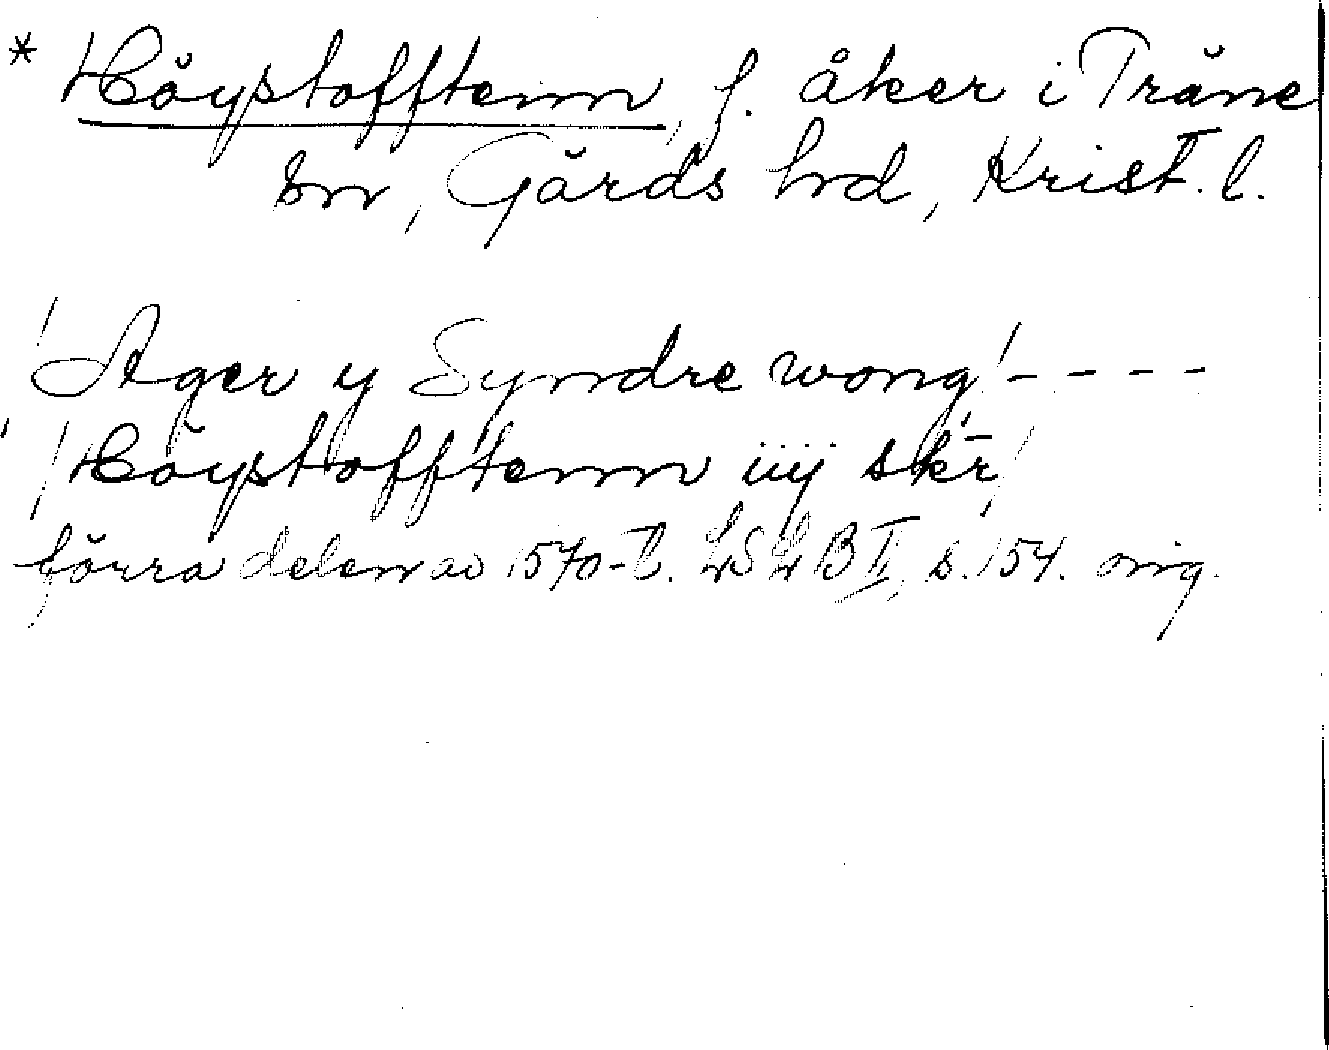 * Höystofftenn, f. åker i Träne
sn, Gärds hd, Krist. l.
Ager y Syndre wong ----
Höystofftenn iiij skr̄
förra delen av 1570-t. LSLB II, s. 154. orig.